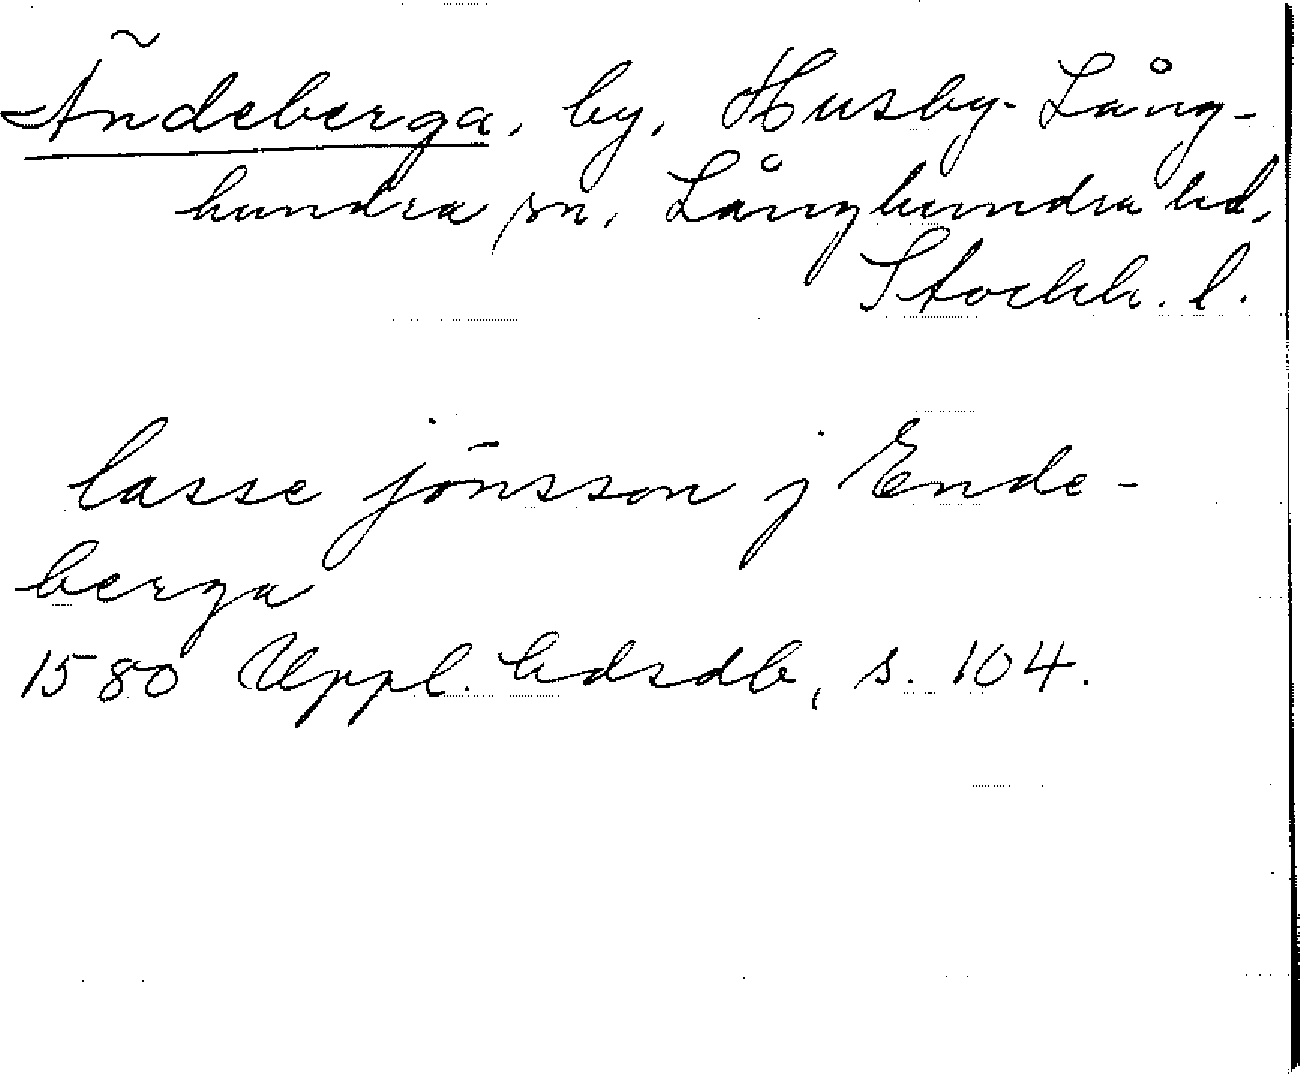 Ändeberga, by, Husby-Lång-
hundra sn, Långhundra hd,
Stockh. l.
lasse jönsson j Ende-
berga
1580 Uppl. hdsdb, s. 104.